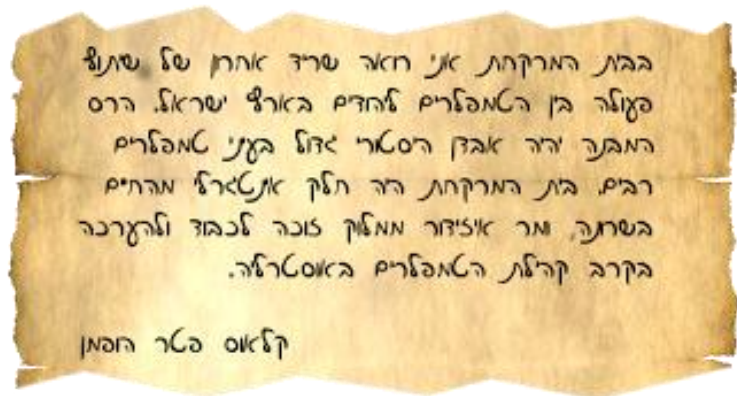 בבית המרקחת אני רואה שריד אחרון של שיתוף
פעולה בין הטמפלרים ליהודים בארץ ישראל. הרס
המבנה יהיה אבדן היסטורי גדול בעיני טמפלרים
רבים. בית המרקחת היה חלק אינטגרלי מהחיים
בשרונה, ומר איזידור ממלוק זוכה לכבוד ולהערכה
בקרב קהילת הטמפלרים באוסטרליה.
קלאוס פטר הופמן